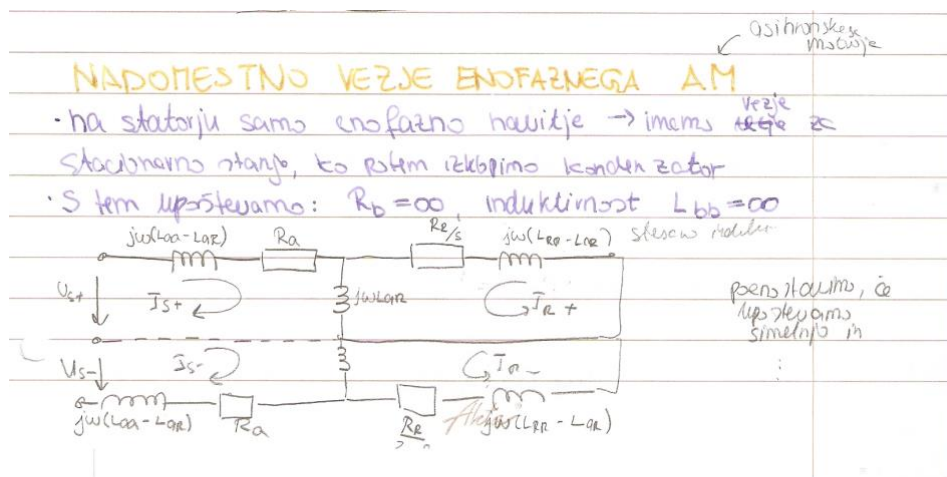 asihronskega
motorja
NADOMESTNO VEZJE ENOFAZNEGA AM
· na statorju samo enofazno navitje → imamo vezje za
stacionarno stanje, ko potem izklopimo kondenzator
· S tem upoštevamo: Rb = ∞, induktivnost Lbb = ∞
jω(Laa-LaR) Ra RR/s jω(LRR-LaR)
Us+ Is+ jωLaR IR+
poenostavimo, če
upoštevamo
simetrijo in
⋮
Us- Is- IR-
jω(Laa-LaR) Ra RR jω(LRR-LaR)